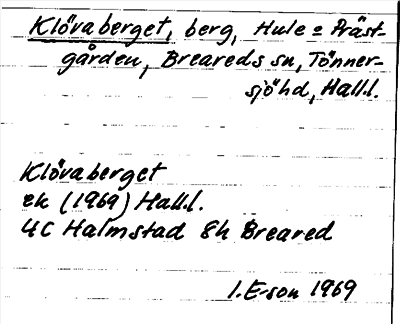 Klövaberget, berg, Hule o Präst-
gården, Breareds sn, Tönner-
sjöhd, Hall.
Klövaberget
ek (1969) Hall.
4C Halmstad 8h Breared
I. E-son 1969